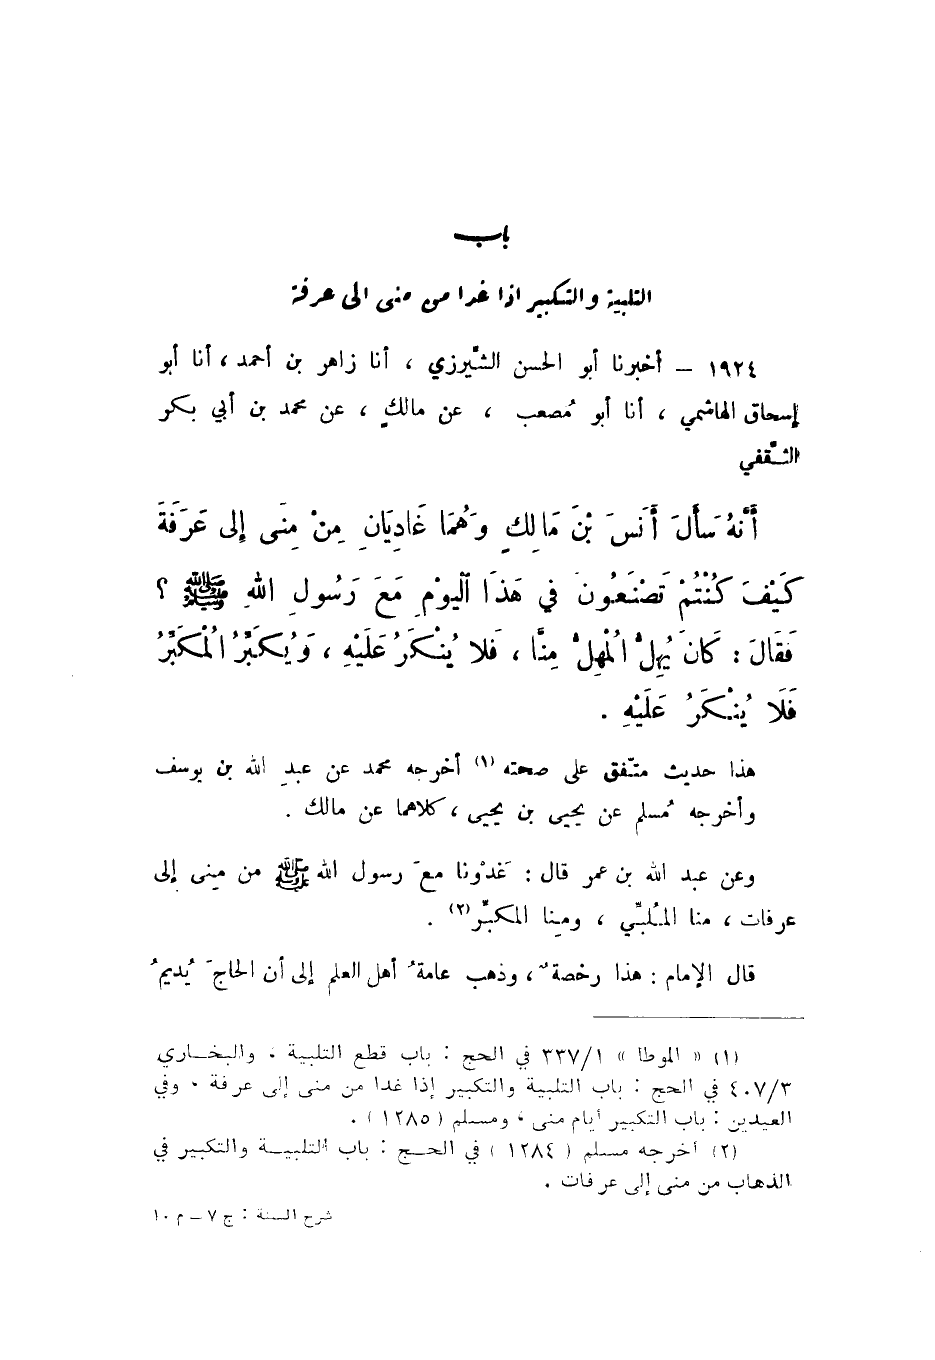 باب
التلبية والتكبير اذا غدا من منى الى عرفة
١٩٢٤ – أخبرنا أبو الحسن الشِّيرزي ، أنا زاهر بن أحمد ، أنا أبو
إسحاق الهاشمي ، أنا أبو مُصعب ، عن مالكٍ ، عن محمد بن أبي بكر
الثَّقفي
أَنَّهُ سَأَلَ أَنَسَ بْنَ مَالِكٍ وَهُمَا غَادِيَانِ مِنْ مِنَى إِلى عَرَفَةَ
كَيْفَ كُنْتُمْ تَصْنَعُونَ في هَذَا اليَوْمِ مَعَ رَسُولِ اللهِ ﷺ ؟
فَقَالَ : كَانَ يُهِلُّ الْمُهِلُّ مِنَّا ، فَلا يُنْكَرُ عَلَيْهِ ، وَيُكَبِّرُ الْمُكَبِّرُ
فَلَا يُنْكَرُ عَلَيْهِ .
هذا حديث متّفق على صحته (١) أخرجه محمد عن عبدِ الله بن يوسف
وأخرجه مُسلم عن يحيى بن يحيى ، كلاهما عن مالك .
وعن عبد الله بن عمر قال : غَدَوْنا معَ رسول الله ﷺ من مِنى إلى
عرفات ، منا المُلبِّي ، ومِنا المكبِّر (٢) .
قال الإمام : هذا رخصةٌ ، وذهب عامةُ أهل العلم إلى أن الحاجَّ يُديمُ
(١) « الموطا » ٣٣٧/١ في الحج : باب قطع التلبية ، والبخاري
٤٠٧/٣ في الحج : باب التلبية والتكبير إذا غدا من منى إلى عرفة ، وفي
العيدين : باب التكبير أيام منى ، ومسلم ( ١٢٨٥ ) .
(٢) أخرجه مسلم ( ١٢٨٤ ) في الحج : باب التلبية والتكبير في
الذهاب من منى إلى عرفات .
شرح السنة : ج ٧ – م ١٠